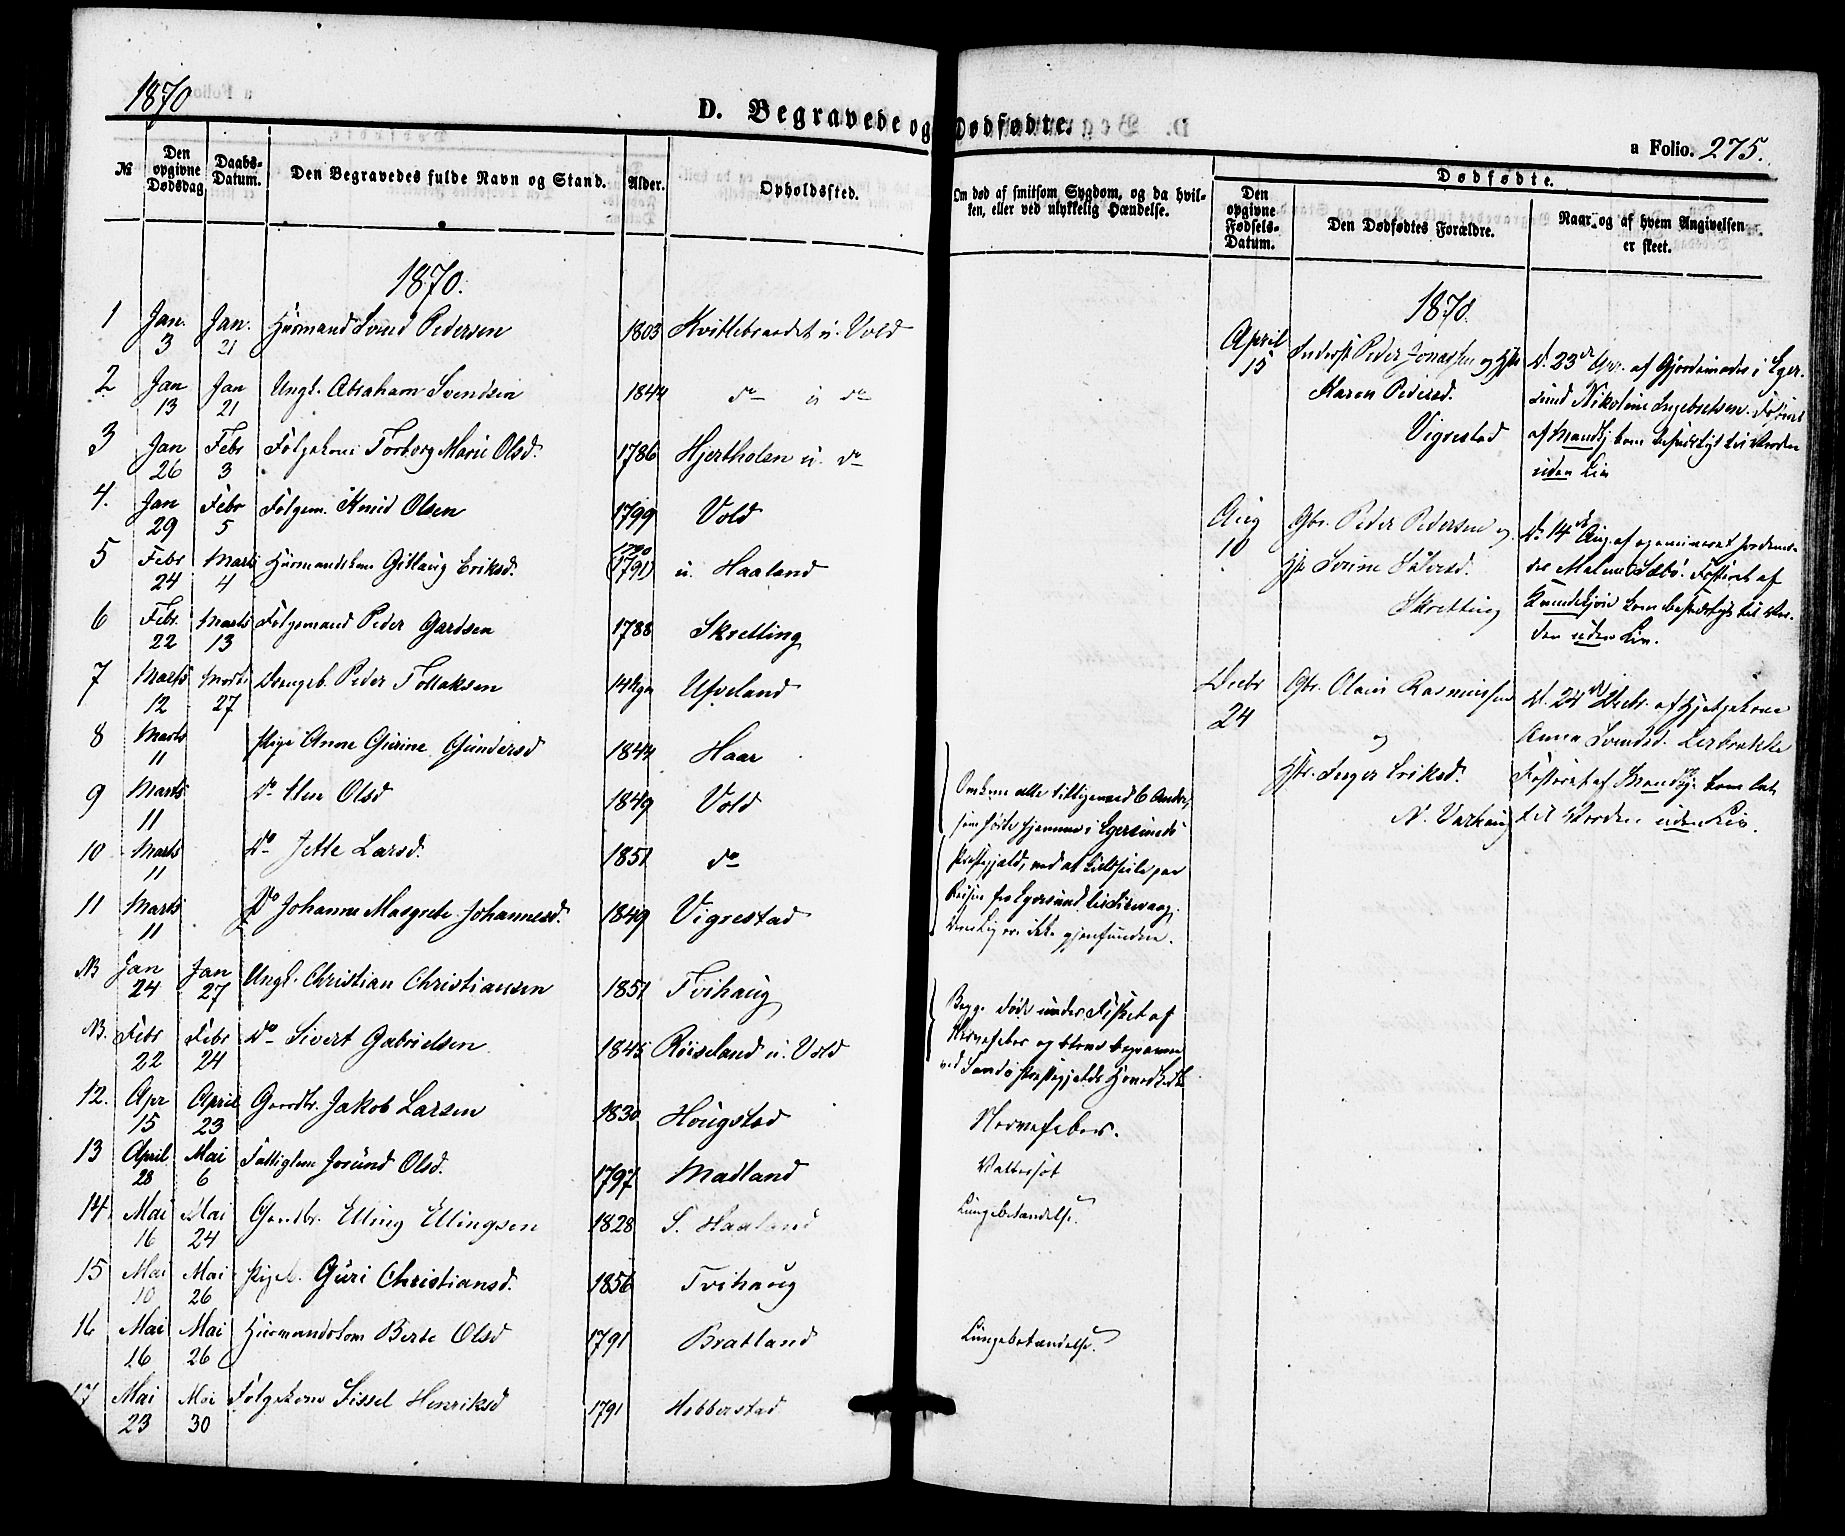 1870
D. Begravede og Dødfødte.
a Folio. 275.
№
Den opgivne Dødsdag
Daabs-Datum.
Den Begravedes fulde Navn og Stand.
Alder.
Opholdssted.
Om død af smitsom Sygdom, og da hvilken, eller ved ulykkelig Hændelse.
Dødfødte.
Den opgivne Fødsels-Datum.
Den Dødfødtes Forældre.
Naar og af hvem Angivelsen er skeet.
1870.
1 Jan. 3 Jan. 21 Huusmand Svend Pedersen 1803 Kvitlebraadet u. Vold
2 Jan 13 Jan 21 Ungk. Abraham Svendsen 1844 do u do
3 Jan 26 Febr 3 Følgekone Torborg Marie Olsd. 1786 Hjertholen u. do
4. Jan 29 Febr 5 Følgem. Knud Olsen 1799 Vold
5 Febr 24 Marts 4 Huusmandskone Gitlaug Eriksd. 1790 (1791) u. Haaland
6 Febr. 22 Marts 13 Følgemand Peder Gardsen 1788 Skretting
7 Marts 12 Marts 27 Drengeb. Peder Tollaksen 14 Dgr Ueland
8 Marts 11 Pige Anne Gurine Gundersd 1844 Haar
9 Marts 11 Do Olsd 1849 Vold
10 Marts 11 Do Jette Larsd. 1851 do
11 Marts 11 Do Johanne Margrete Johannesd. 1849 Vigrestad
Omkom alle tilligemed 6 Andre,
som hørte hjemme i Egersunds
Præstegjeld, ved at
Reisen fra Egersund til Sirevaag.
Lig ere ikke gjenfundne.
NB Jan 24 Jan 27 Ungk. Christian Christiansen 1851 Tvihaug
NB. Febr 22 Febr 24 Do Sivert Gabrielsen 1845 Røiseland u. Vold
Begge døde under Fisket af
Nervefeber og bleve begravne
ved Præstegjelds Hovedk.
12. Apr 15 April 23 Gaardbr. Jakob Larsen 1830 Hougstad Nervefeber.
13 April 28 Mai 6 Fattiglem Jorund Olsd. 1797 Madland Vattersot
14. Mai 16 Mai 24 Gaardbr. Elling Ellingsen 1828 S. Haaland Lungebetændelse.
15 Mai 10 Mai 26 Pigeb. Guri Christiansd. 1856 Tvihaug
16 Mai 16 Mai 26 Huusmandskone Berte Olsd 1791 Bratland Lungebetændelse.
17 Mai 23 Mai 30 Følgekone Sissel Henriksd 1791 Hobberstad
1870.
April 15 Inderst Peder Jonassen og Hstr
Karen Pedersd.
Vigrestad
D. 23de Apr. af Gjordemoder i Eger-
sund Nikoline Ingebretsen. Fosteret
af Mandkj kom til Verden
uden Liv
Aug 10 Gbr. Peder Pedersen og
H. Serine Sølversd.
Skretting
D. 14de Aug. af examineret Jordemo-
der Malene Sæbø. Fosteret af
Kvindekjøn kom til Ver-
den uden Liv.
Decbr 24 Gbr. Olaus Rasmussen
og
Hstr. Inger Eriksd.
N. Varhaug
D. 24de Decbr. af Hjelpekone
Anna Svendsd. Lerbrække
Fosteret af Mandkj. kom
til Verden uden Liv.